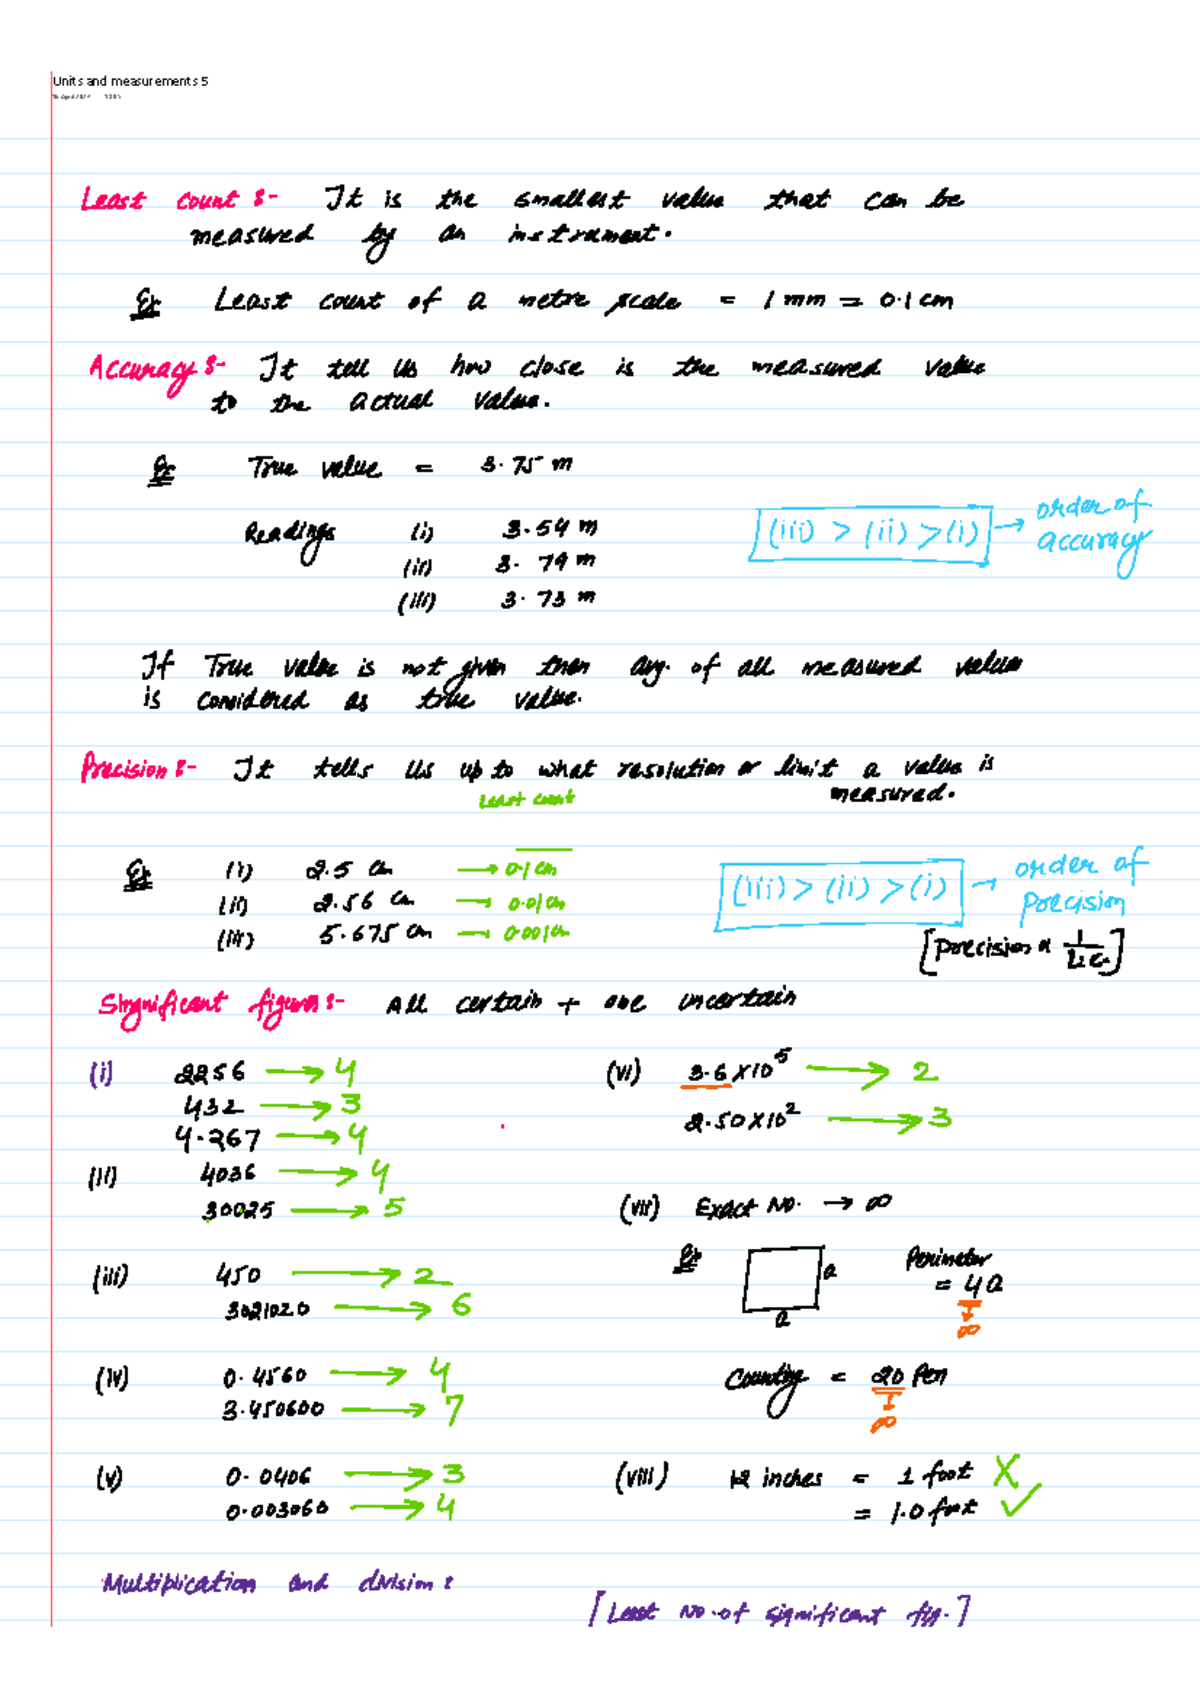 Units and measurements 5
Least count :- It is the smallest value that can be
measured by an instrument.
Ex Least count of a metre scale = 1 mm = 0.1 cm
Accuracy :- It tell us how close is the measured value
to the actual value.
Ex True value = 3.75 m
Readings (i) 3.54 m
(ii) 3.79 m
(iii) 3.73 m
(iii) > (ii) > (i) → order of
accuracy
If True value is not given then avg. of all measured values
is considered as true value.
Precision :- It tells us up to what resolution or limit a value is
measured.
Least count
Ex (i) 2.5 cm → 0.1 cm
(ii) 2.56 cm → 0.01 cm
(iii) 5.675 cm → 0.001 cm
(iii) > (ii) > (i) → order of
precision
[precision ∝ 1/L.C.]
Singnificant figures :- All certain + one uncertain
(i) 2256 → 4
432 → 3
4.267 → 4
(ii) 4036 → 4
30025 → 5
(iii) 450 → 2
3021020 → 6
(iv) 0.4560 → 4
3.450600 → 7
(v) 0.0406 → 3
0.003060 → 4
(vi) 3.6 × 10⁵ → 2
2.50 × 10² → 3
(vii) Exact No. → ∞
Ex a
a
Perimeter
= 4a
∞
Counting = 20 Pen
∞
(viii) 12 inches = 1 foot X
= 1.0 foot ✓
Multiplication and division :
[Least No. of significant fig.]